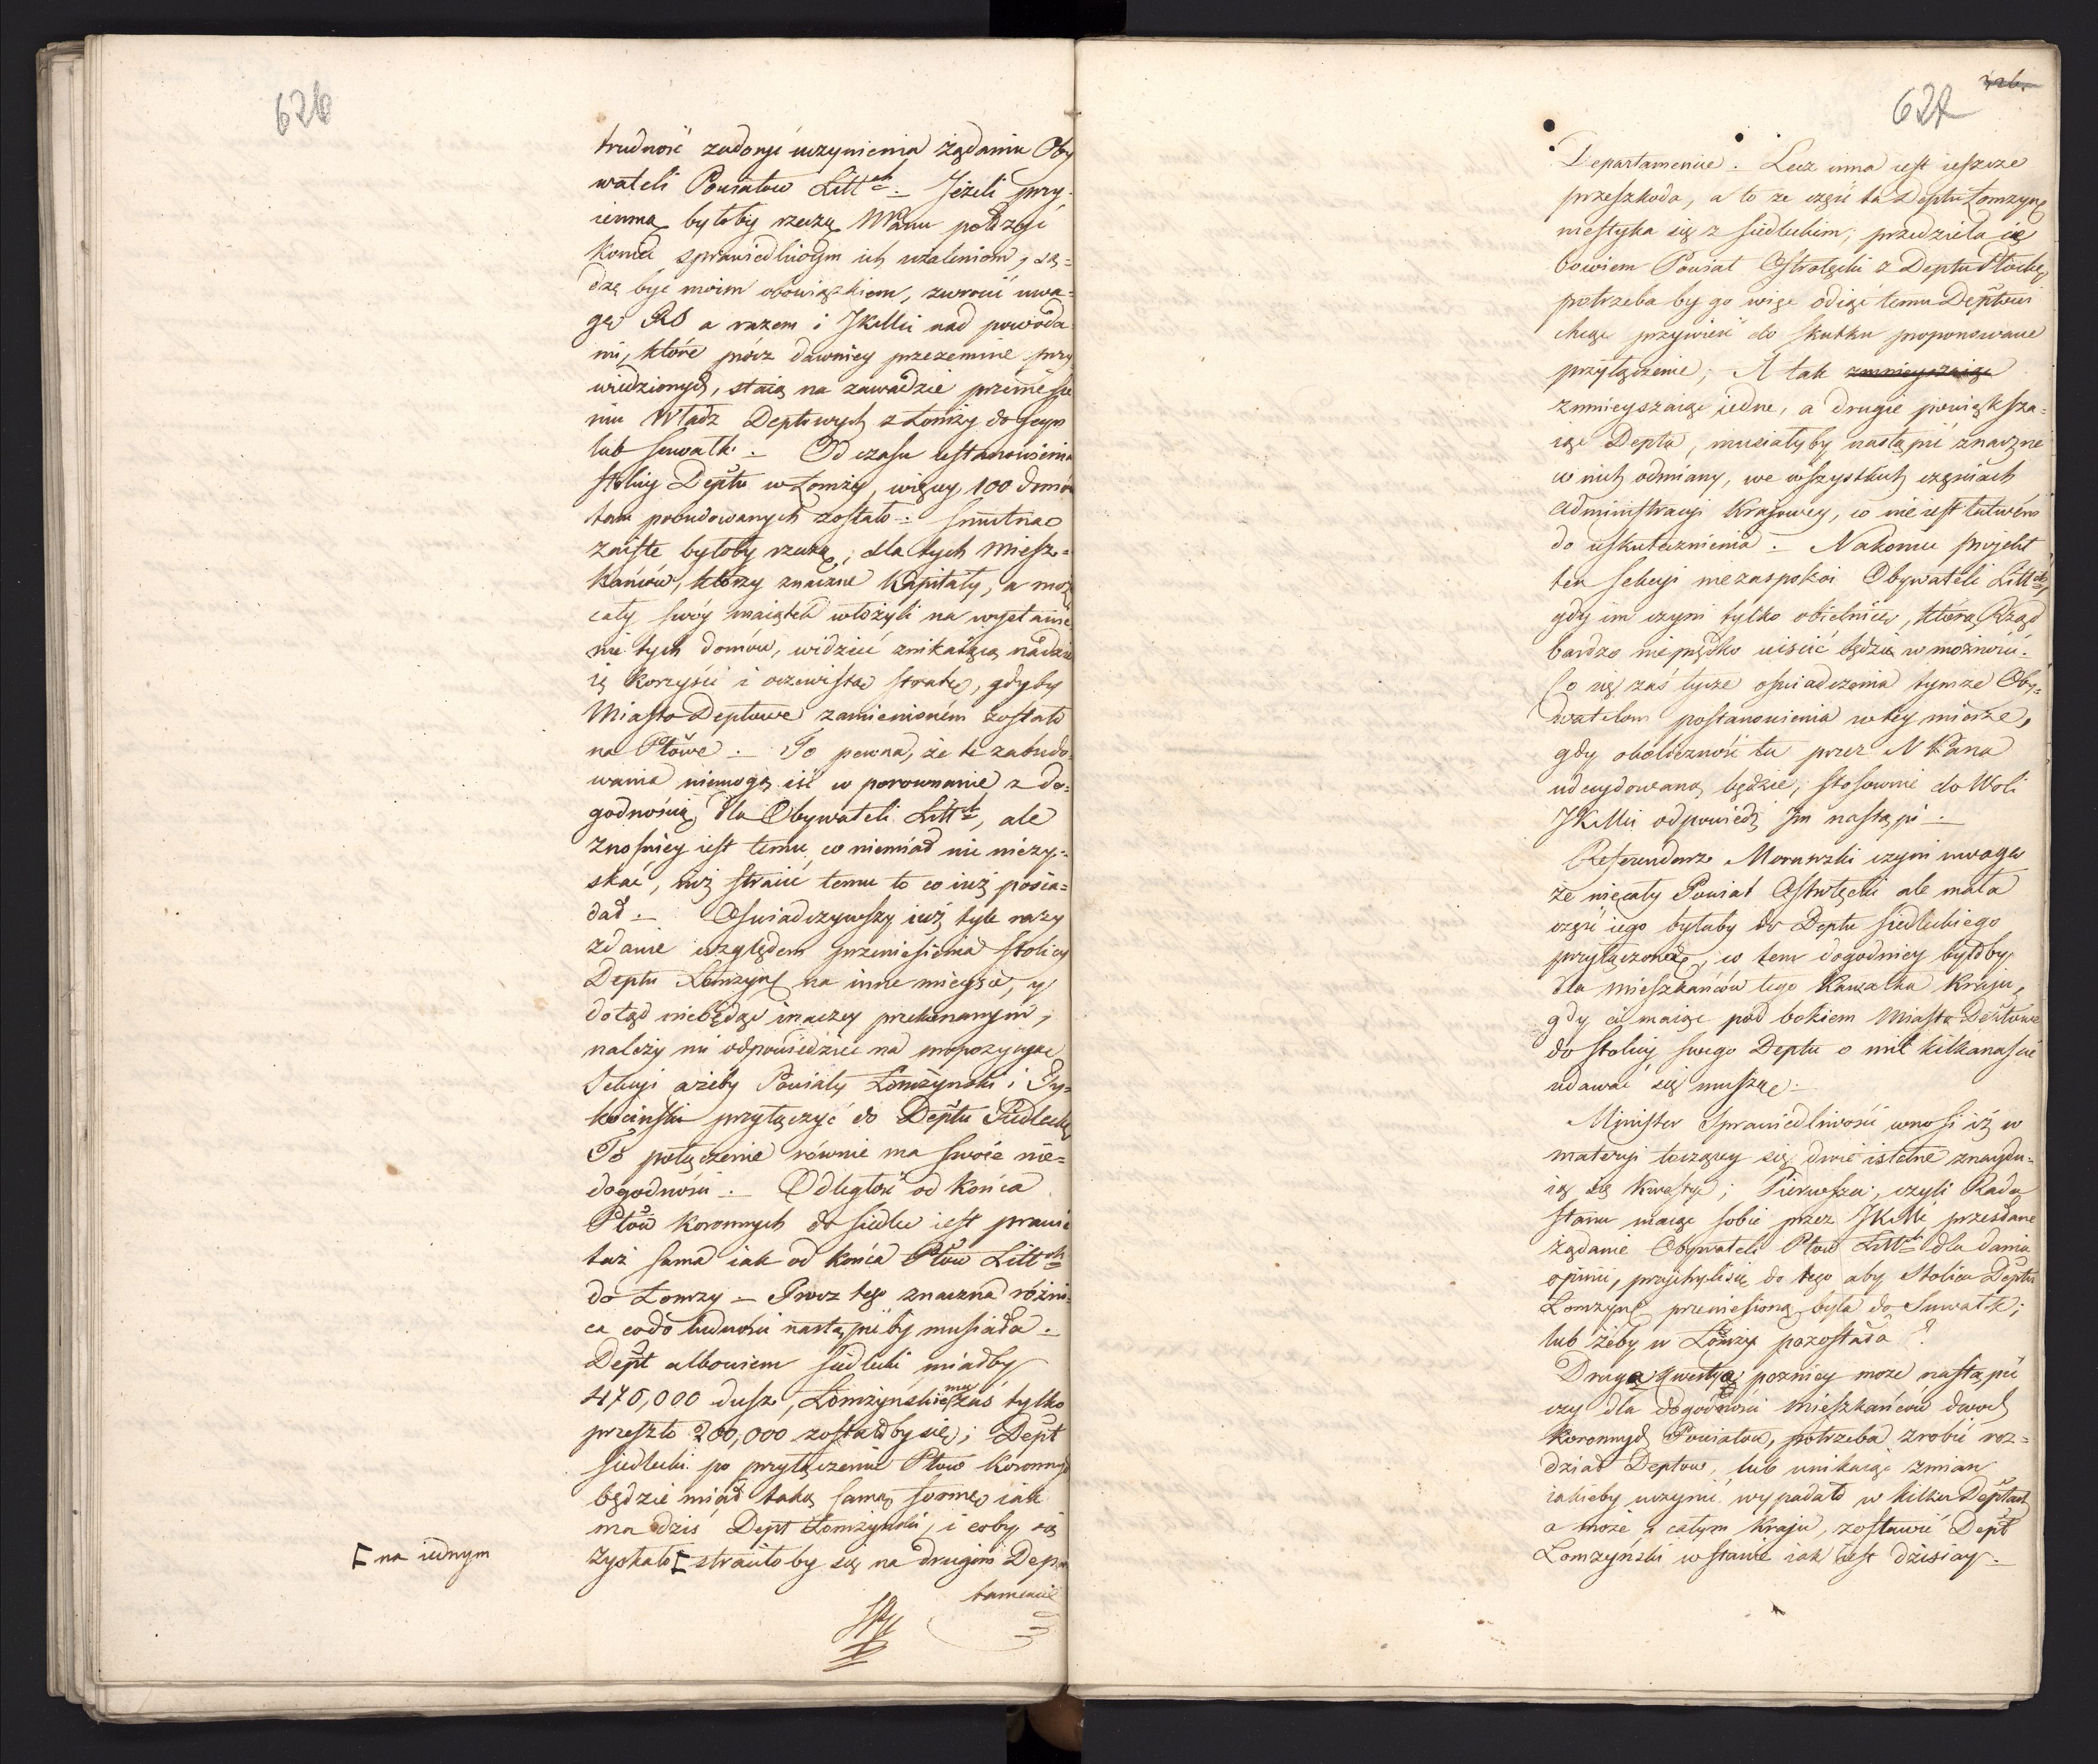 626
trudność zadosyć uczynienia żądaniu Oby
wateli Powiatow Litt<sup>ch</sup> .– Jeżeli przy-
iemną byłoby rzeczą M<sup>ra</sup>
sprawiedliwym ich użaleniom, są-
dzę być moim obowiązkiem, zwrocić uwa-
gę RS a razem i JKMci nad powoda
mi, które prócz dawniey przezemnie przy
wiedzionych, staią na zawadzie przeniesie
niu Władz Deptowych z Łomży do Seyn
lub Suwałk .– Od czasu ustanowienia
stolicy Deptu w Łomży, więcey 100 domow
tam pobudowanych zostało .– Smutna
zaiste byłoby rzeczą, dla tych miesz-
kańców, którzy znaczne Kapitały, a może
cały swóy maiątek włożyli na wystawie
nie tych domów, widzieć znikaiącą nadzie
ię korzyści i oczewistą stratę, gdyby
Miasto Deptowe zamienioném zostało
na Ptowe .– To pewna, że te zabudo
wania niemogą iść w porownanie z do-
godnością dla Obywateli Litt<sup>ch</sup>, ale
znośniey iest temu co niemiał nic niezy-
skać, niż stracić temu to co iuż posia-
dał .– Oswiadczywszy iuż tyle razy
zdanie względem przeniesienia stolicy
Deptu Łomżyń na inne mieysce, y
dotąd niebędąc inaczey przekonanym,
należy mi odpowiedzieć na propozycyą
Sekcyi ażeby Powiaty Łomżyński i Ty-
kociński przyłączyć do Deptu Siedleckę
To połączenie równie ma swoie nie-
dogodności .– Odległość od końca
Ptow koronnych do Siedlec iest prawie
taż sama iak od końca Ptow Litt<sup>ch</sup>
do Łomży – Procz tego znaczna różni-
ca codo ludności nastąpićby musiała .–
Dept albowiem siedlecki miałby
470,000 dusz, Łomżyńskiemu zaś tylko
przeszło 200,000 zostałoby się; Dept
siedlecki po przyłączeniu Ptow koronnych
będzie miał taką samą formę iak
ma dziś Dept Łomżyński, i coby się
zyskało [ straciłoby się na drugim Depar
tamencie
[ na iednym
626.
627
Departamencie .– Lecz inna iest ieszcze
przeszkoda, a to że część ta Deptu Łomżyńę
niestyka się z siedleckim, przedziela ie
bowiem Powiat Ostrołęcki z Deptu Płockę
potrzeba by go więc odiąć temu Deptowi
chcąc przywieść do skutku proponowane
przyłączenie; A tak zmnieyszaiąc
zmnieyszaiąc iedne, a drugie powiększa-
iąc Depta, musiałyby nastąpić znaczne
w nich odmiany, we wszystkich częściach
administracyi Kraiowey, co nie iest łatwém
do uskutecznienia .– Nakoniec projekt
ten Sekcyi niezaspokoi Obywateli Litt<sup>ch</sup>,
gdy im czyni tylko obietnicę, którą Rząd
bardzo nieprędko uiścić będzie w możności .–
Co się zaś tycze oswiadczenia tymże Oby-
watelom postanowienia wtey mierze,
gdy okoliczność ta przez N Pana
udecydowaną będzie, stosownie do Woli
JKMci odpowiedź Im nastąpi .–
Referendarz Morawski czyni uwagę
że niecały Powiat Ostrołęcki ale mała
część iego byłaby do Deptu siedleckiego
przyłączoną, co tem dogodniey byłoby
dla mieszkańców tego Kawałka Kraju,
gdy ci maiąc pod bokiem Miasto Deptowe
do stolicy swego Deptu o mil kilkanaście
udawać się muszą .–
Minister Sprawiedliwości wnosi iż w
materyi toczącey się dwie istotne znaydu-
ią się Kwestye; Pierwsza, czyli Rada
stanu maiąc sobie przez JKMć przesłane
żądanie Obywateli Ptow Litt<sup>ch</sup> dla dania
opinii, przychyli się do tego aby Stolica Deptu
Łomżyńę przeniesioną była do Suwałk;
lub żeby w Łomży pozostała ?
Druga kwestya poźniey może nastąpić
czy dla dogodności Mieszkańców dwoch
koronnych Powiatow, potrzeba zrobić roz-
dział Deptow, lub unikaiąc zmian
iakieby uczynić wypadało w kilku Deptach
a może w całym Kraju, zostawić Dept
Łomżyński w stanie iak iest dzisiay .–